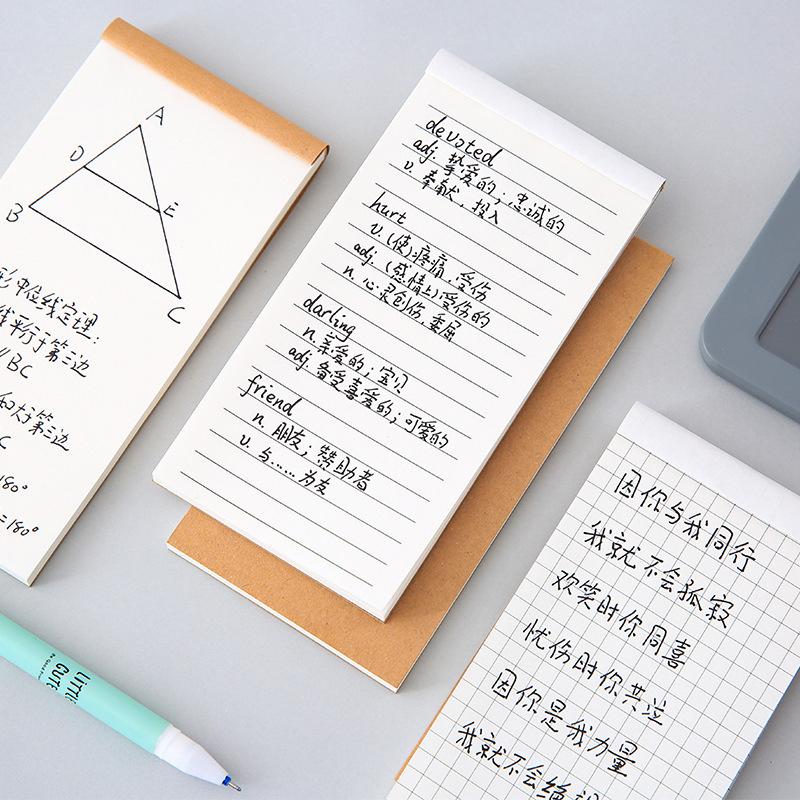 A
D
E
B
C
形中位线定理：
线平行于第三边
//BC
和大于第三边
C
180°
=180°
devoted
adj. 挚爱的；忠诚的
v. 奉献，投入
hurt
v. (使)疼痛，受伤
adj. (感情上)受伤的
n. 心灵创伤，委屈
darling
n. 亲爱的；宝贝
adj. 备受喜爱的；可爱的
friend
n. 朋友；赞助者
v. 与……为友
因你与我同行
我就不会孤寂
欢笑时你同喜
忧伤时你共泣
因你是我力量
我就不会绝
LITTLE
CUTE